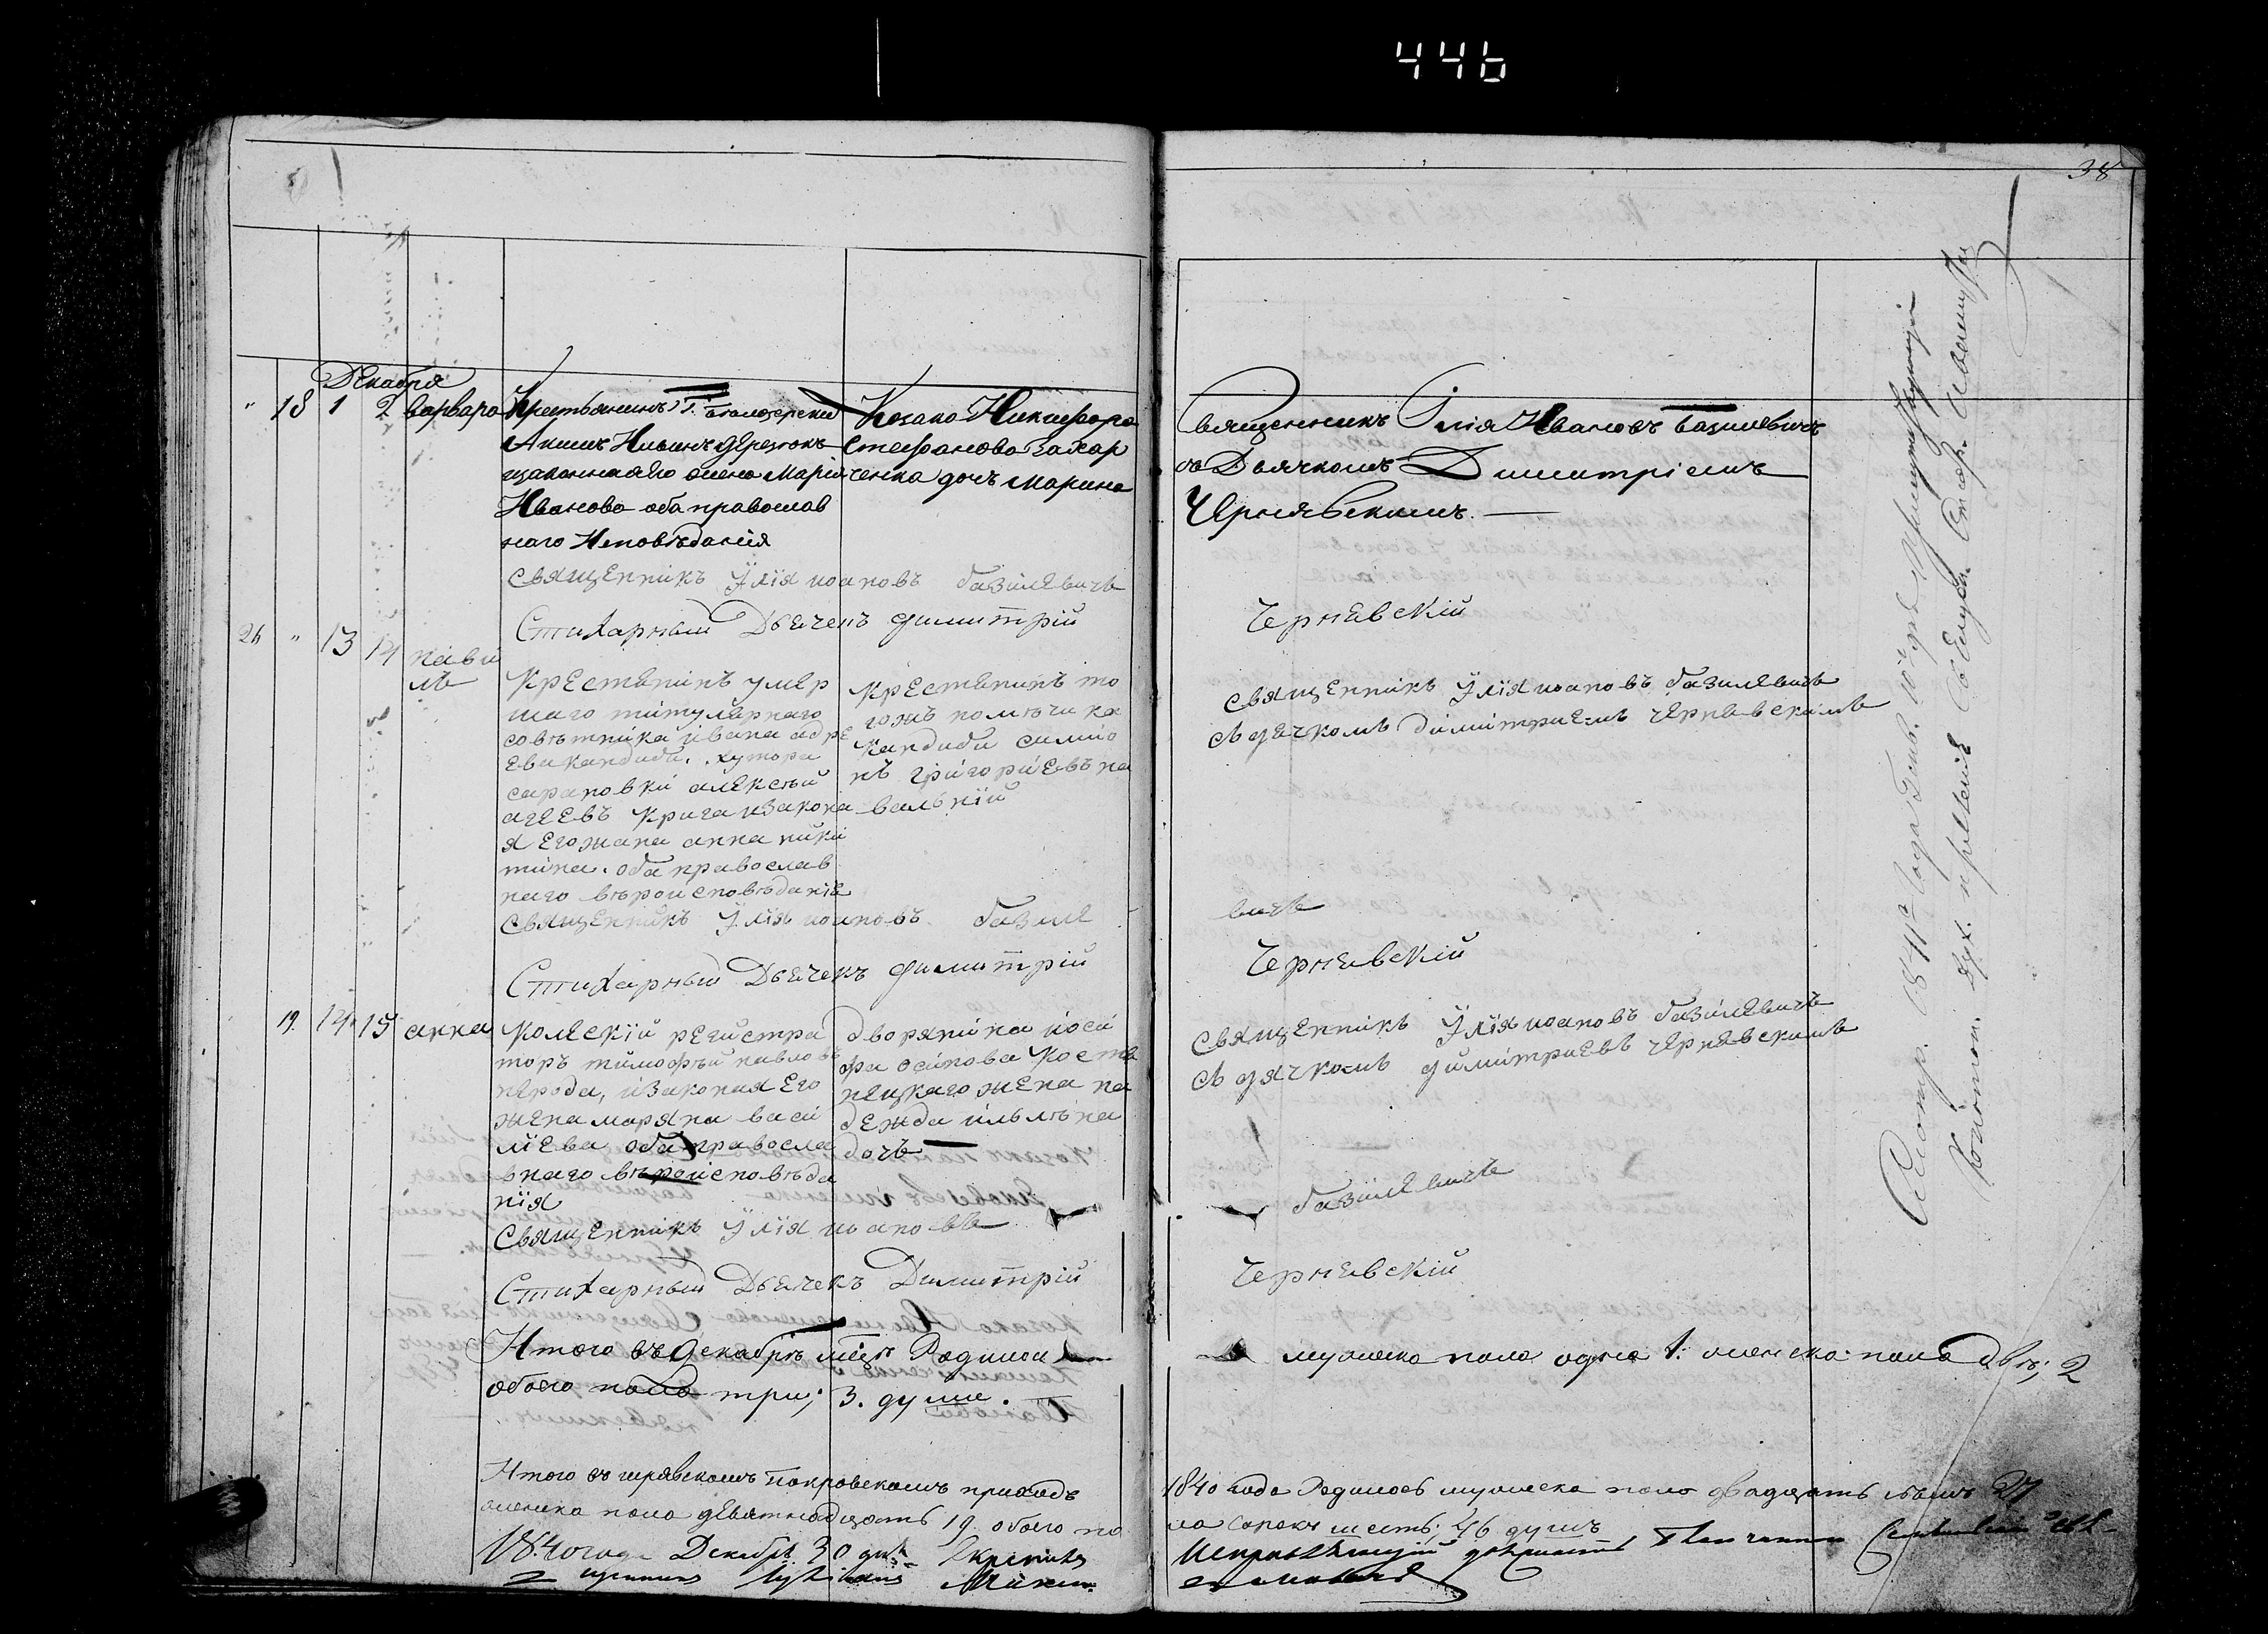 446
38
Декабря
" 18 1 2 варвара
Крестьянинъ Г.
Акимъ Ильинъ
законная его жена Марія
Иванова оба православ
наго Исповѣданія
Козака Никифора
Стефанова Захар
ченка дочъ Марина
Священникъ Ілія Ивановъ Базилевичъ
съ Дьячкомъ Димитріемъ
Чернявскимъ
священникъ Ўлїя иоановъ базилевичъ
Стихарный Дьячекъ Димитрій
Чернявскій
26 " 13 14 паві
лъ
Крестянинъ умер
шаго титулярнаго
совѣтника ивана адре
ева кандиби. хутора
сарановки алексѣй
агеевъ крига изакона
я его жана анна ники
тина. оба православ
наго вѣроисповѣданіе
крестянинъ то
гожъ помѣчика
кандиби симио
нъ григориевъ на
валькій
священникъ Ўлїя иоановъ базилевичъ
съ дячкомъ димитриемъ чернявскимъ
священникъ Ўлія иоановъ базиле
вичъ
Стихарный Дьячекъ Димитрій
Чернявскій
19. 14 15 анна
колескій регистра
торъ тимофѣй павловъ
нерода, изаконая его
жена маряна васи
лїева оба правосла
внаго вѣроисповѣда
нїя
дворянина йоси
фа осипова косте
нецкаго жена на
дежда ильлѣна
дочъ
священникъ Ўлїя иоановъ базилевичъ
съ дячкомъ димитриевъ чернявскимъ
священникъ Ўлїя иоановъ
базїлевичъ
Стихарный Дьячекъ Димитрій
Чернявскій
Итого въ Декабрѣ мѣцѣ Родилось
мужеска пола одна 1: женска пола двѣ; 2
обоего пола три; 3. душе.
Итого въ покровскомъ приходѣ
1840 года Родилось мужеска пола двадцать съемъ 27
женска пола девятнадцать 19. обоего по
ла сорокъ шесть; 46 душъ
1840 года Декабря 30 дня
1841 года Генв. 10 дня
дух. правленіе